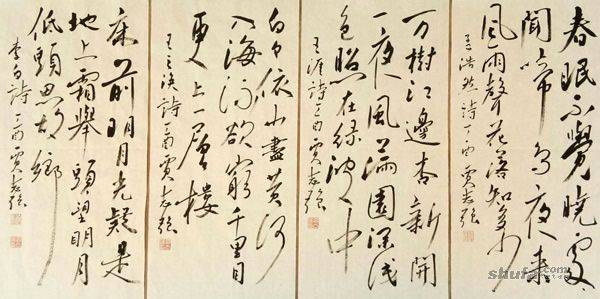 春眠不覺曉處々
聞啼鳥夜来
風雨聲花落知多少
孟浩然詩丁酉賈志強
万樹江邊杏新開
一夜風滿園深淺
色照在綠波中
王涯詩丁酉賈志強
白日依山盡黄河
入海流欲窮千里目
更上一層樓
王之渙詩丁酉賈志強
床前明月光疑是
地上霜舉頭望明月
低頭思故鄉
李白詩丁酉賈志強